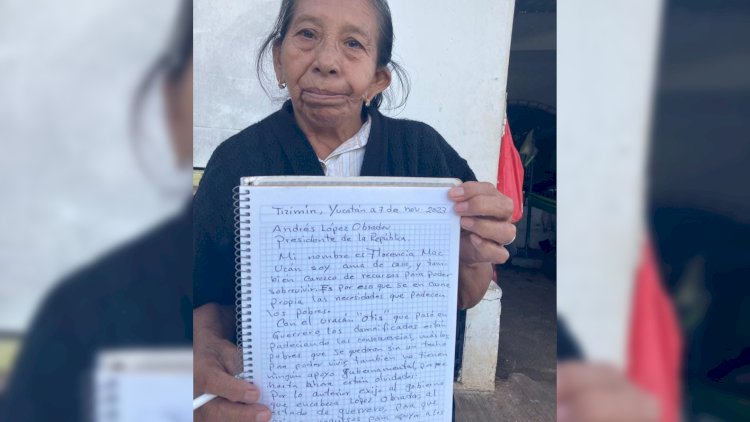 Tizimín, Yucatán a 7 de nov. 2023
Andrés López Obrador
Presidente de la República.
Mi nombre es Florencia Mac
Ucán soy ama de casa, y tam-
bien carezco de recursos para poder
sobrevivir. Es por eso que se en carne
propia las necesidades que padecen
los pobres.
Con el uracán "Otis" que pasó en
Guerrero los damnificados están
padeciendo las consecuencias, más los
pobres que se quedaron sin un
Para poder vivir, también no tienen
ningún apoyo gubernamental,
hasta ahora están olvidados.
Por lo anterior exijo al gobierno
que encabeza López Obrador, al
estado de guerrero, para que
para apoyar a los